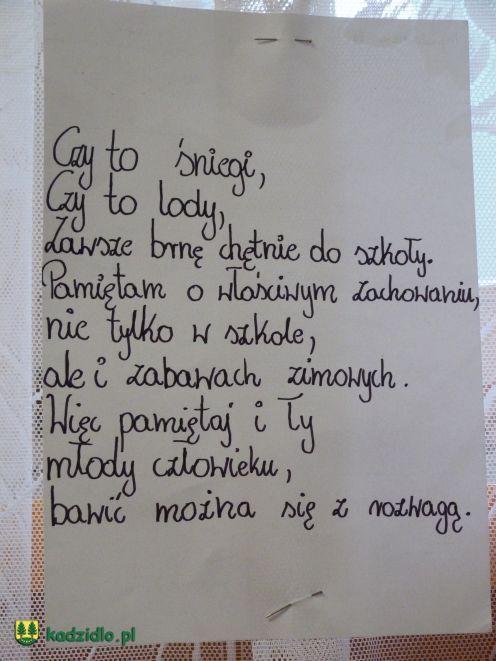 Czy to śniegi,
Czy to lody,
Zawsze brnę chętnie do szkoły.
Pamiętam o właściwym zachowaniu,
nie tylko w szkole,
ale i zabawach zimowych.
Więc pamiętaj i Ty
młody człowieku,
bawić można się z rozwagą.
kadzidlo.pl